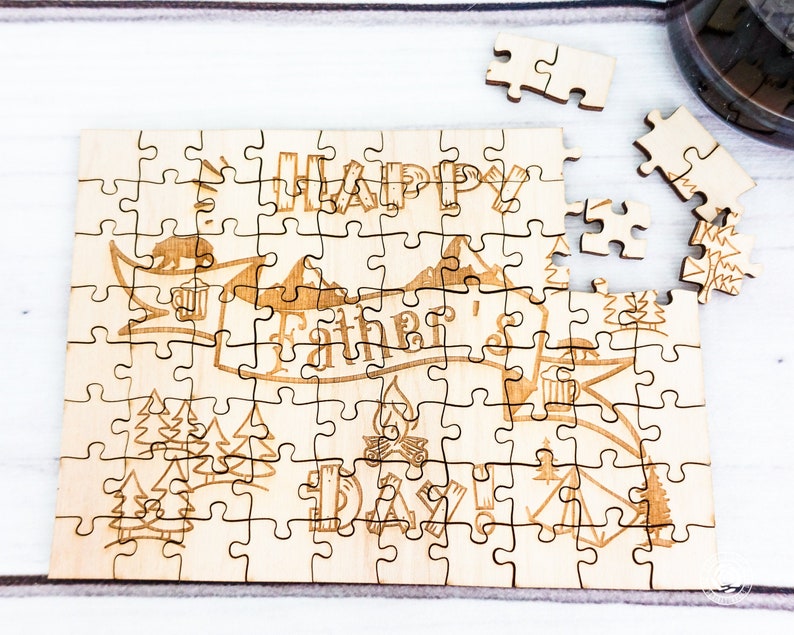 HAPPY
Father's
DAY!